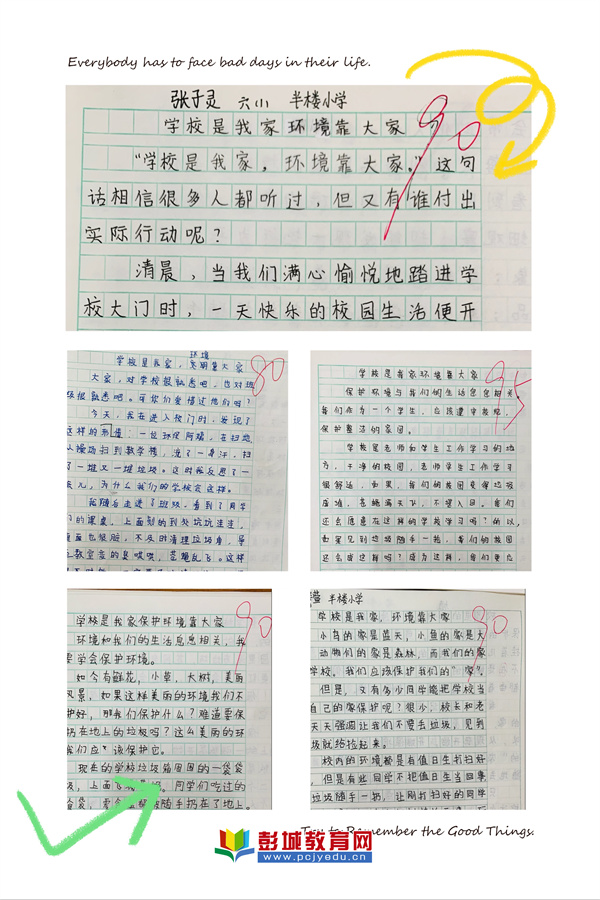 Everybody has to face bad days in their life.
张子灵 六小 半楼小学
学校是我家环境靠大家
90
“学校是我家，环境靠大家。”这句
话相信很多人都听过，但又有谁付出
实际行动呢？
清晨，当我们满心愉悦地踏进学
校大门时，一天快乐的校园生活便开
环境
学校是我家，靠大家
80
大家，对学校很熟悉吧，也对班
级很熟悉吧。可你们爱惜过他们吗？
今天，我在进入校门时，发现了
这样的：一位环保阿姨，在扫地
从操场扫到教学楼，流了一身汗，扫
了一堆又一堆垃圾。这时我反思了一
会儿，为什么我们的学校会这样。
我随后走进了班级，看到了同学
们的课桌，上面刻的到处坑坑洼洼，
面也很脏，不及时清理垃圾角，导
致教室的臭哄哄，苍蝇乱飞。这样
学校是我家环境靠大家
95
保护环境与我们的生活息息相关，
我们作为一个学生，应该遵守校规，
保护整洁的家园。
学校是老师和学生工作学习的地
方，干净的校园，老师学生工作学习
很舒适，如果，我们的校园变得垃圾
成堆，苍蝇满天飞，不堪入目。我们
还会愿意在这样的学校学习吗？所以，
如果见到垃圾随手一捡，我们的校园
还会成这样吗？成为这样，我们更应
学校是我家保护环境靠大家
90
环境和我们的生活息息相关，我
要学会保护环境。
如今有鲜花，小草，大树，美丽
风景，如果这样美丽的环境我们不
护好，那我们保护什么？难道要保
扔在地上的垃圾吗？这么美丽的环
我们应“该保护它。
现来的学校垃圾箱周围的一袋袋
圾，上面飞。同学们吃过的
袋，零食随手扔在了地上。
半楼小学
学校是我家，环境靠大家
90
小鸟的家是蓝天，小鱼的家是大
动物们的家是森林，而我们的家
学校。我们应该保护我们的“家”。
但是，又有多少同学能把学校当
自己的家保护呢？很少，校长和老
天天强调让我们不要丢垃圾，见到
圾就给捡起来。
校内的环境都是有值日生打扫好
但是有些同学不把值日生当回事
垃圾随手一扔，让刚打扫好的同学
Try to Remember the Good Things.
彭城教育网
www.pcjyedu.cn